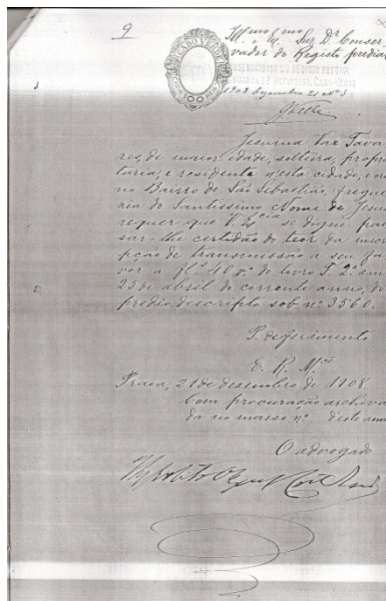 9
Illmo Exmo
Snr. Dr. Conser-
vador do Registo predial
1908 Dezembro 21 Nº 3
Jesuina Vaz Tava-
res, de maior idade, solteira, propri-
taria, e residente n'esta cidade,
no Bairro de São Sebastião, fregue-
zia do Santissimo Nome de Jesus
requer que V. Excia se digne pas-
sar-lhe certidão do teor da inscri-
pção de transmissão a seu fa-
vor a fls 40 vº do livro F. 2º em
25 de abril do corrente anno, do
predio descripto sob nº 3560.
P. deferimento
E. R. Mce
Praia, 21 de desembro de 1908
Com procuração archiva-
da no masso nº deste anno
O advogado